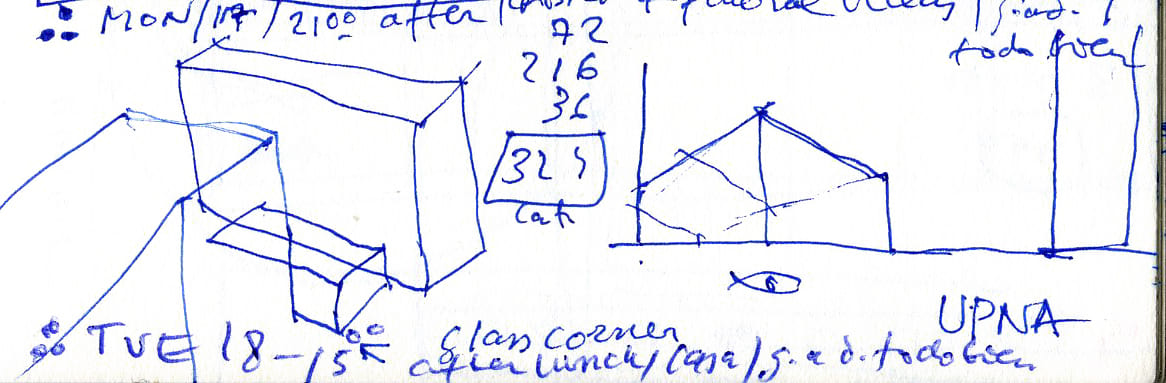 MON/17/21ºº after
todo bien
72
216
36
324
UPNA
TUE 18-15ºº glass corner
after lunch/casa/g.a d. todo bien